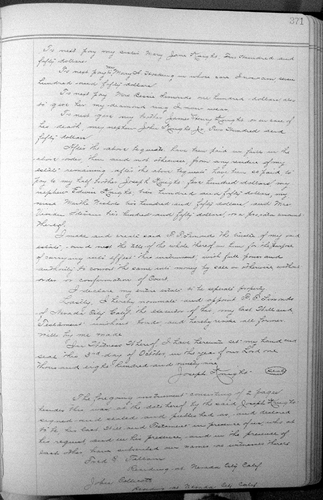 371
To next pay my niece Mary Jane Knight, Two hundred and
fifty dollars.
To next pay to Mary A. in whose house I am now
hundred and fifty dollars
To next pay Mrs hundred and fifty dollars also
to give her my diamond ring I now wear
To next give my brother James Henry Knight or in case of
his death my nephew John Knight, Jr. Two hundred and
fifty dollars
After the above legacies have been paid in full in the
above order then and not otherwise from any residue of my
estate remaining after the above legacies have been so paid, to
pay to my half brother Joseph Knight four hundred dollars, my
nephew Edwin Knight two hundred and fifty dollars, my
niece two hundred and fifty dollars and Mrs
two hundred and fifty dollars, in a precedence named
thereof.
I make and create said the trustee of my said
estate and vest the title of the whole thereof in him for the purpose
of carrying into effect this instrument, with full power and
authority to convert the same into money by sale or otherwise without
order or confirmation of Court.
I declare my entire estate to be separate property
Lastly, I hereby nominate and appoint
of Nevada City Calf. the executor of this my last Will and
Testament without bonds, and hereby revoke all former
Wills by me made.
In Witness Whereof I have hereunto set my hand and
seal this 3rd day of October in the year of our Lord one
thousand eight hundred and ninety one
Joseph Knight (Seal)
The foregoing instrument consisting of 2 pages
besides this was at the date hereof by the said Joseph Knight
signed and sealed and published as, and declared
to be his last Will and Testament in presence of us, who at
his request and in his presence, and in the presence of
each other have subscribed our names as witnesses thereto
Fred R.
Residing at Nevada City Calf.
John
Residing at Nevada City Calf